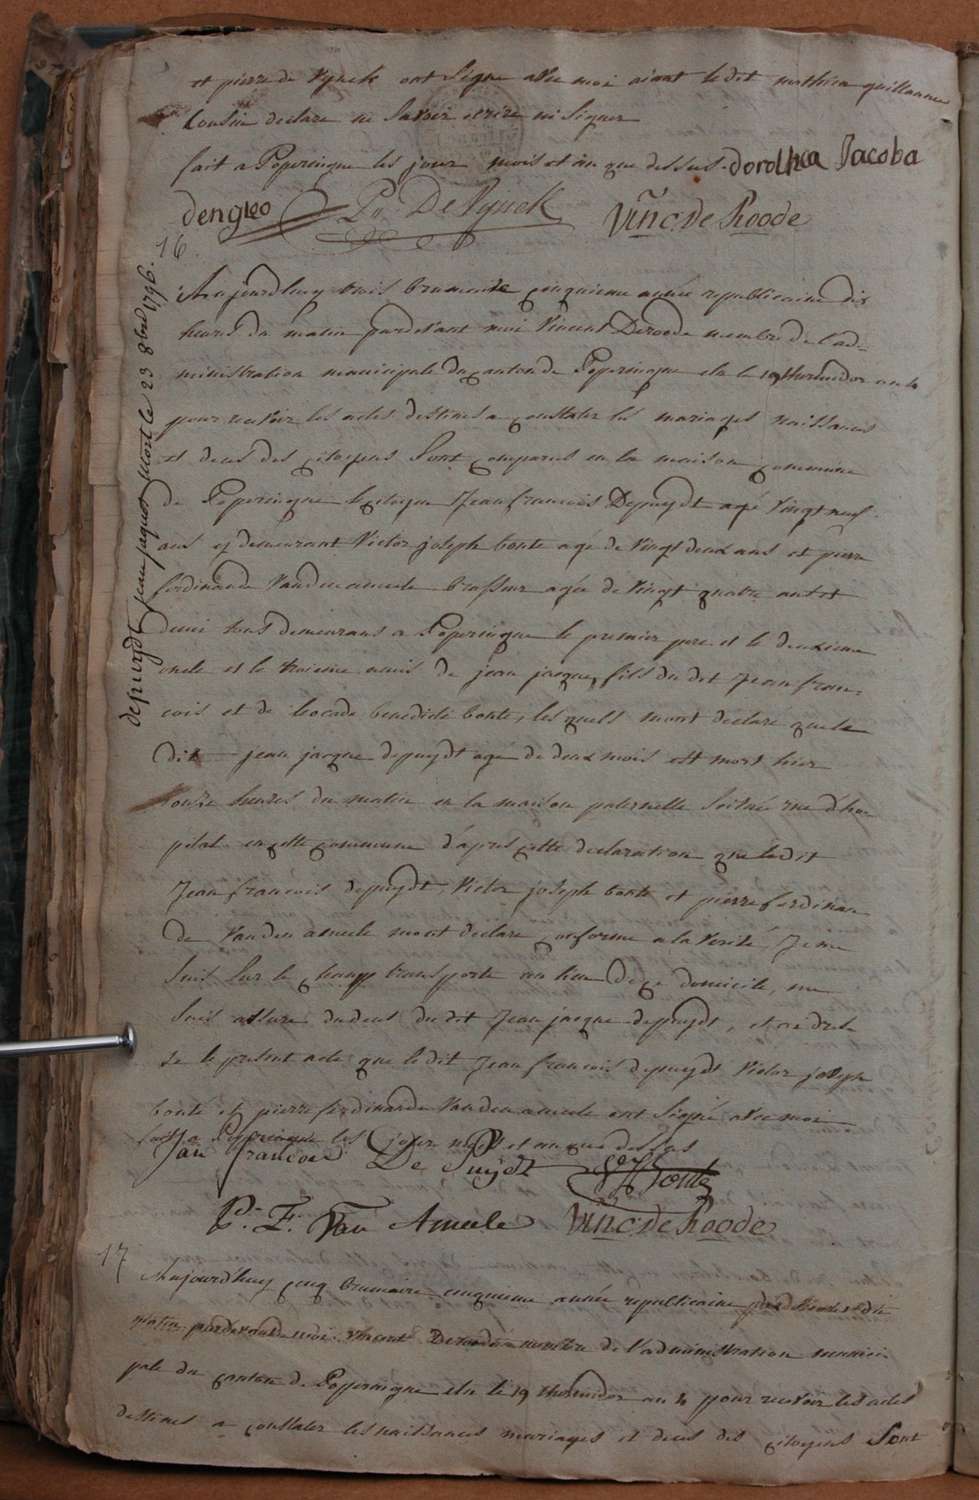 et pierre de Vynck ont Signe avec moi aiant le dit mathieu guillaume
Cousin declare ne Savoir ecrire ni Signer
fait a Poperingue les jour mois et an que dessus. dorothea Jacoba
dengreo P. De Vynck Vinc. de Roode
16.
Aujourdhuy trois brumaire cinquieme année republicaine dix
heures du matin pardevant moi Vincent Deroode membre de l'ad-
ministration municipale du canton de Poperingue elu le 19 thermidor an 4
pour recevoir les actes destines a constater les mariages naissances
et deces des citoyens Sont comparus en la maison commune
de Poperingue le citoyen Jean francois Depuydt agé vingt neuf
ans y demeurant Victor joseph bonte agé de Vingt deux ans et pierre
ferdinande Vanden ameele brasseur agée de Vingt quatre ans et
demi tous demeurans a Poperingue le premier pere et le deuxieme
oncle et le troisieme amis de jean jacque fils du dit Jean fran-
cois et de leocade benedicte bonte, les quels mont declaré que le
dit jean jacque depuydt agé de deux mois est mort hier
onze heures du matin en la maison paternelle Scitué rue d'ho-
pital en cette commune d'apres cette declaration que ledit
Jean francois depuydt, Victor joseph bonte et pierre ferdinan
de Vanden ameele mont declare conforme a la verité, Je me
Suis Sur le champ transporte au lieu de ce domicile, me
Suis assure du deces du dit Jean jacque depuydt, et en dres-
se le present acte que le dit Jean francois depuydt Victor joseph
bonte et pierre ferdinande Vanden ameele ont Signé avec moi
fait a Poperingue les jour mois et an que dessus
Jan francois De Puijdt Bonte
P. F. Van Ameele Vinc. de Roode
depuydt jean jaques Mort le 23 8bre 1796.
17
Aujourdhuy cinq brumaire cinquieme année republicaine dix
matin pardevant moi vincent Deroode membre de l'administration munici
pale du canton de Poperingue elu le 19 thermidor an 4 pour recevoir les actes
destines a constater les naissances mariages et deces des citoyens Sont